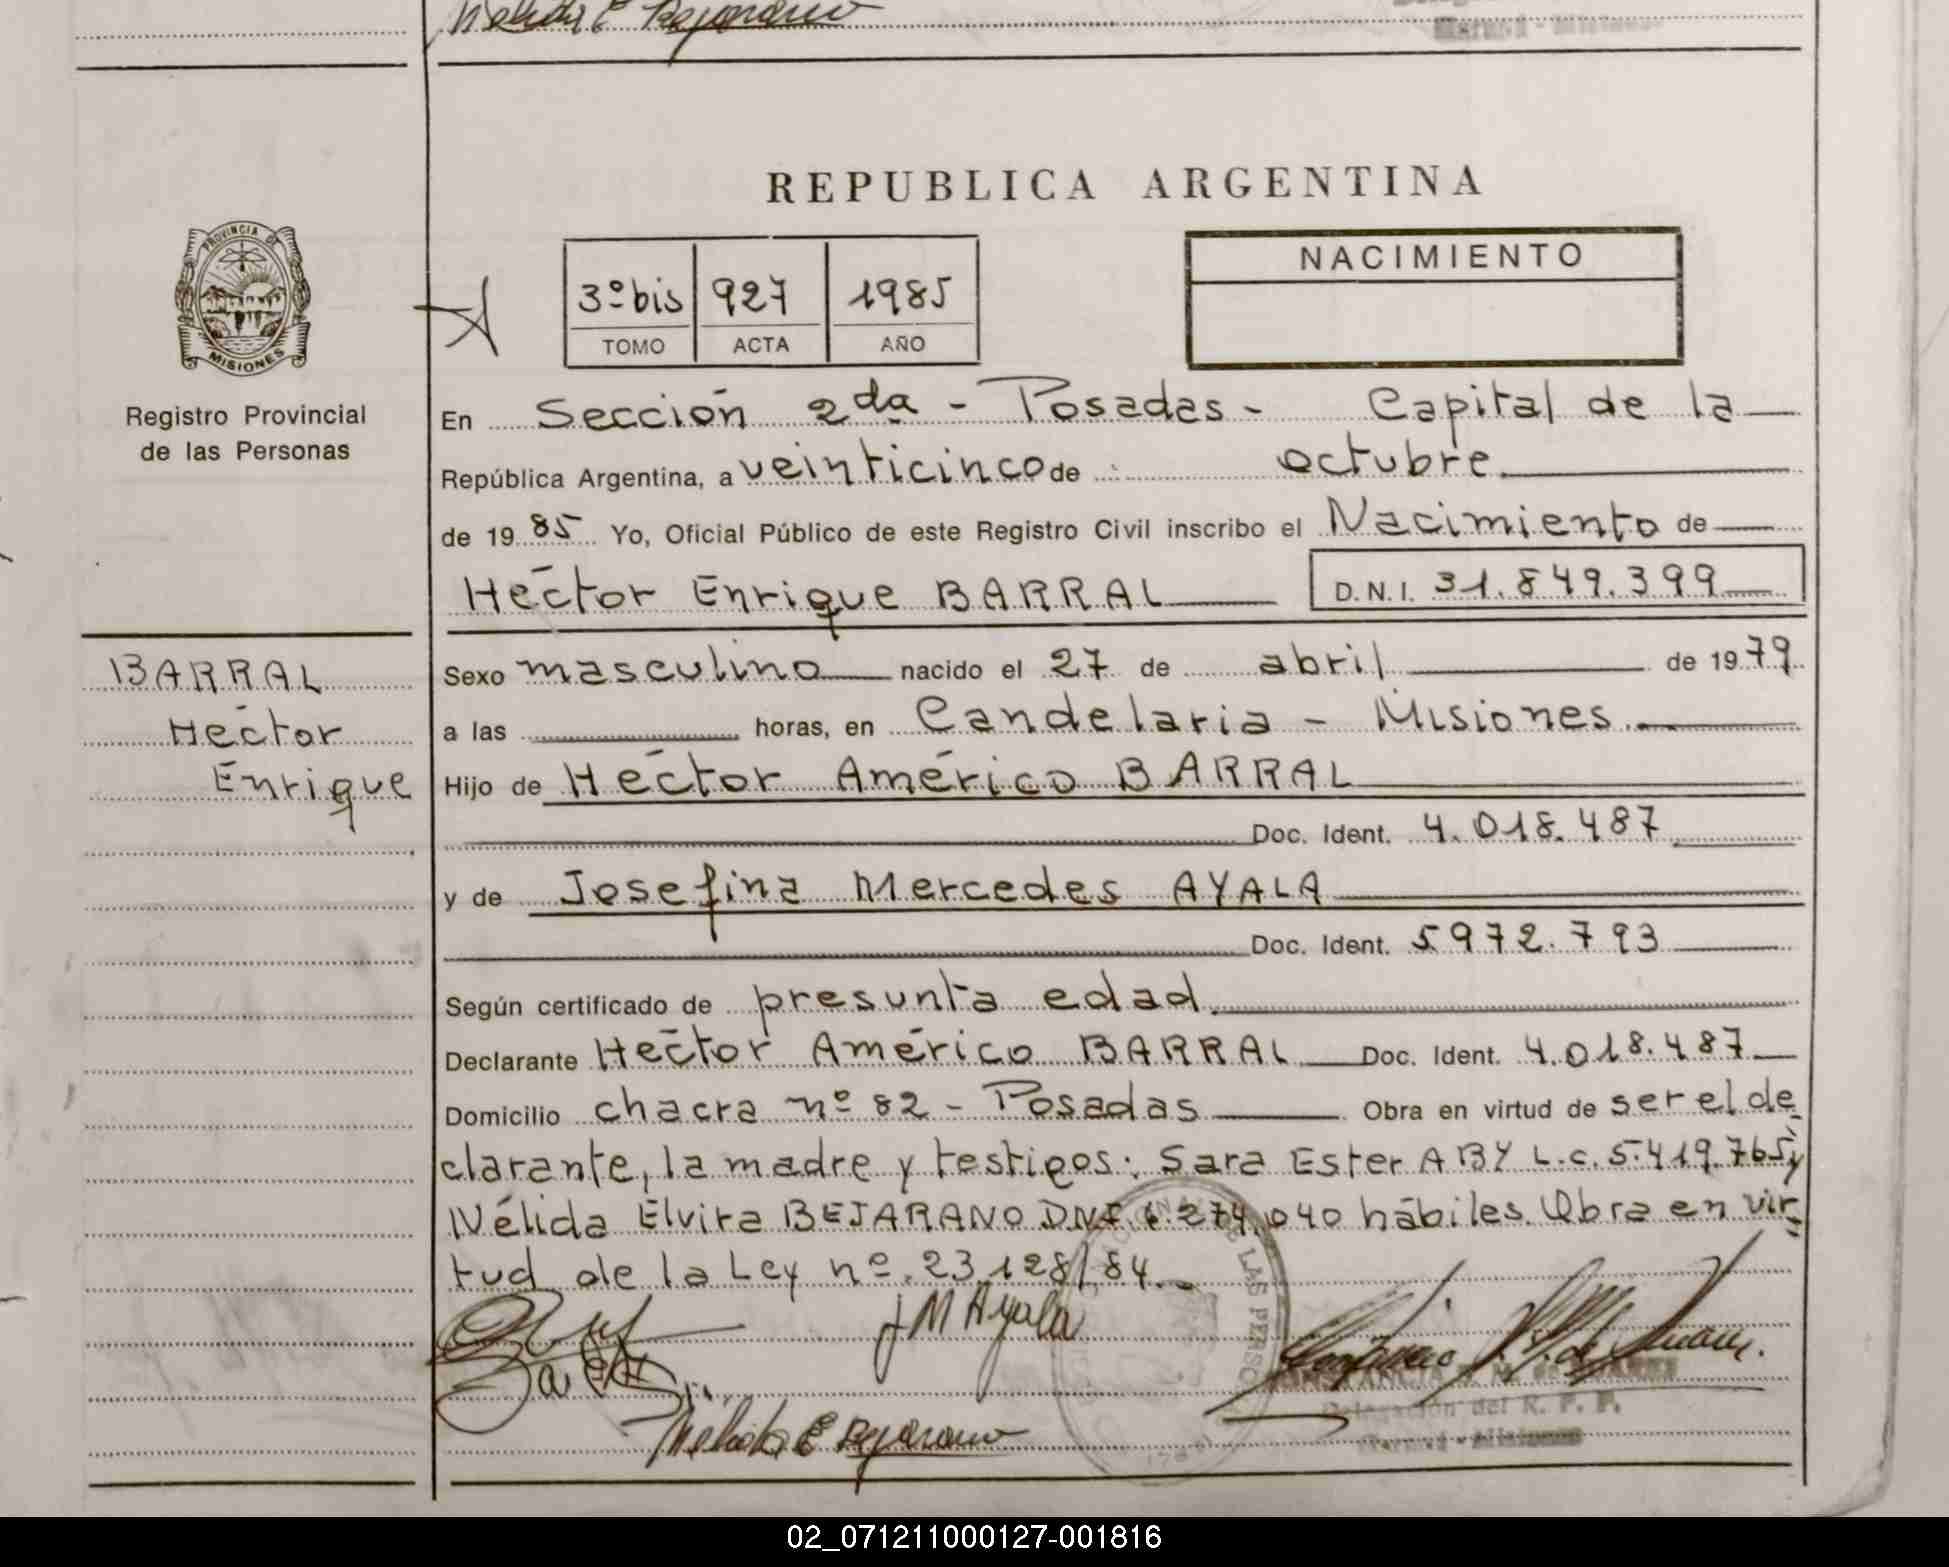 Nélida E Bejarano
REPUBLICA ARGENTINA
PROVINCIA DE
MISIONES
Registro Provincial
de las Personas
3º bis 927 1985
TOMO ACTA AÑO
NACIMIENTO
En Sección 2da - Posadas - Capital de la
República Argentina, a veinticinco de octubre
de 19 85 Yo, Oficial Público de este Registro Civil inscribo el Nacimiento de
Héctor Enrique BARRAL D.N.I. 31.849.399
BARRAL
Héctor
Enrique
Sexo masculino nacido el 27 de abril de 19 79
a las horas, en Candelaria - Misiones
Hijo de Héctor Américo BARRAL
Doc. Ident. 4.018.487
y de Josefina Mercedes AYALA
Doc. Ident. 5.972.793
Según certificado de presunta edad.
Declarante Héctor Américo BARRAL Doc. Ident. 4.018.487
Domicilio chacra nº 82 - Posadas Obra en virtud de ser el de
clarante, la madre y testigos: Sara Ester ABY L.c. 5.419.765 y
Nélida Elvira BEJARANO DNI. 6.274.040 hábiles. Obra en vir
tud de la Ley nº 23.128/84.
J M Ayala
Nélida E Bejarano
Delegación del R. P. P.
02_071211000127-001816